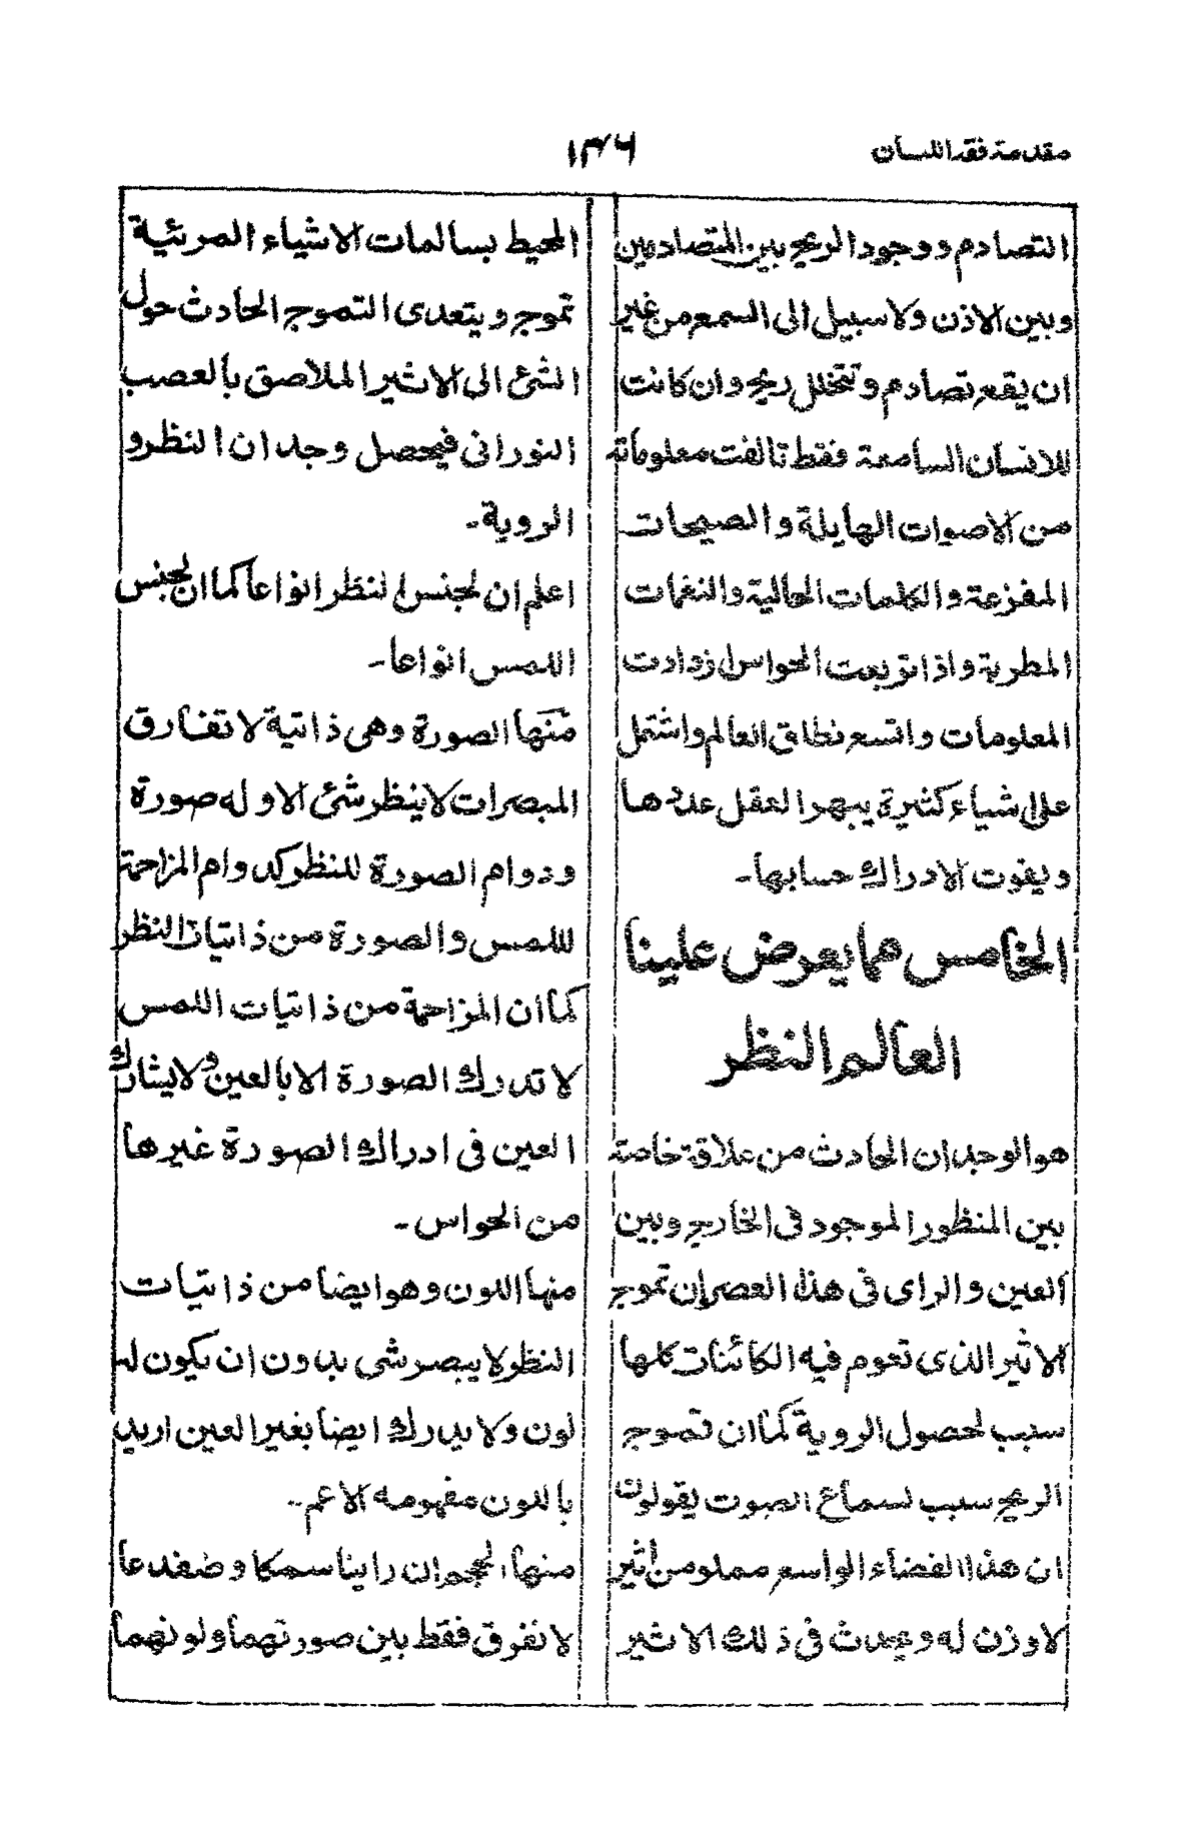 مقدمة فقه اللسان
١٣٦
التصادم ووجود الريح بين المتصادمين
وبين الاذن ولا سبيل الى السمع من غير
ان يقع تصادم وتتخلل ريح وان كانت
للانسان السامعة فقط تالفت معلوماته
من الاصوات الهايلة والصيحات
المفزعة والكلمات الحالية والنغمات
المطربة واذا تربعت الحواس ازدادت
المعلومات واتسع نطاق العالم واشتمل
على اشياء كثيرة يبهر العقل عددها
ويفوت الادراك حسابها۔
الخامس مما يعرض علينا
العالم النظر
هو الوجدان الحادث من علاقة خاصة
بين المنظور الموجود فى الخارج وبين
العين والراى فى هذا العصر ان تموج
الاثير الذى تعوم فيه الكائنات كلها
سبب لحصول الروية كما ان تموج
الريح سبب لسماع الصوت يقولون
ان هذا الفضاء الواسع مملو من اثير
لا وزن له ويحدث فى ذلك الاثير
المحيط بسالمات الاشياء المرئية
تموج ويتعدى التموج الحادث حول
الشئ الى الاثير الملاصق بالعصب
النورانى فيحصل وجدان النظر و
الروية۔
اعلم ان لجنس النظر انواعا كما ان لجنس
اللمس انواعا۔
منها الصورة وهى ذاتية لا تفارق
المبصرات لا ينظر شئ الا وله صورة
ودوام الصورة للنظر كدوام المزاحمة
للمس والصورة من ذاتيات النظر
كما ان المزاحمة من ذاتيات اللمس
لا تدرك الصورة الا بالعين ولا يشارك
العين فى ادراك الصورة غيرها
من الحواس۔
منها اللون وهو ايضا من ذاتيات
النظر لا يبصر شى بدون ان يكون له
لون ولا يدرك ايضا بغير العين اريد
باللون مفهومه الاعم۔
منها الحجم ان راينا سمكا وضفدعا
لا نفرق فقط بين صورتهما ولونهما